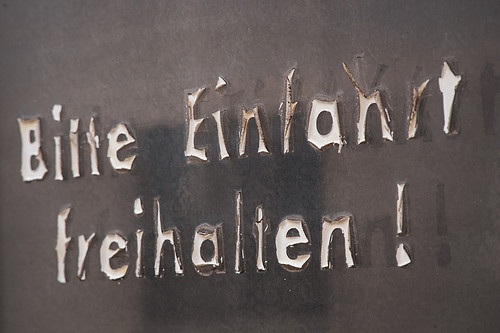 Bitte Einfahrt
freihalten!